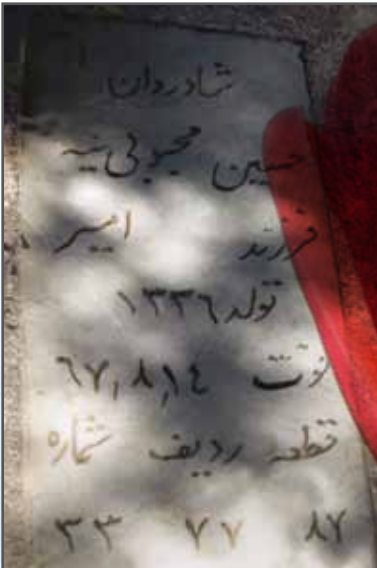 شادروان
حسین محبوبی نیه
فرزند امیر
تولد ۱۳۳۶
فوت ۶۷٫۸٫۱۴
قطعه ردیف شماره
۸۷ ۷۷ ۳۳